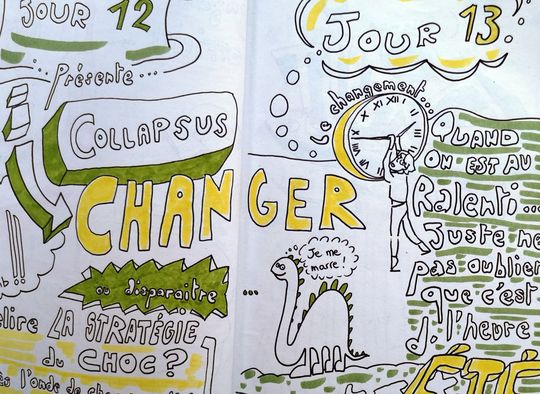 JOUR 12
Présente...
COLLAPSUS
CHANGER
ou disparaitre
...
LA STRATÉGIE
du CHOC?
JOUR 13
Le changement...
XII
Je me
marre!
QUAND
ON EST AU
Ralenti...
Juste ne
pas oublier
que c'est
d. l'heure
ÉTÉ